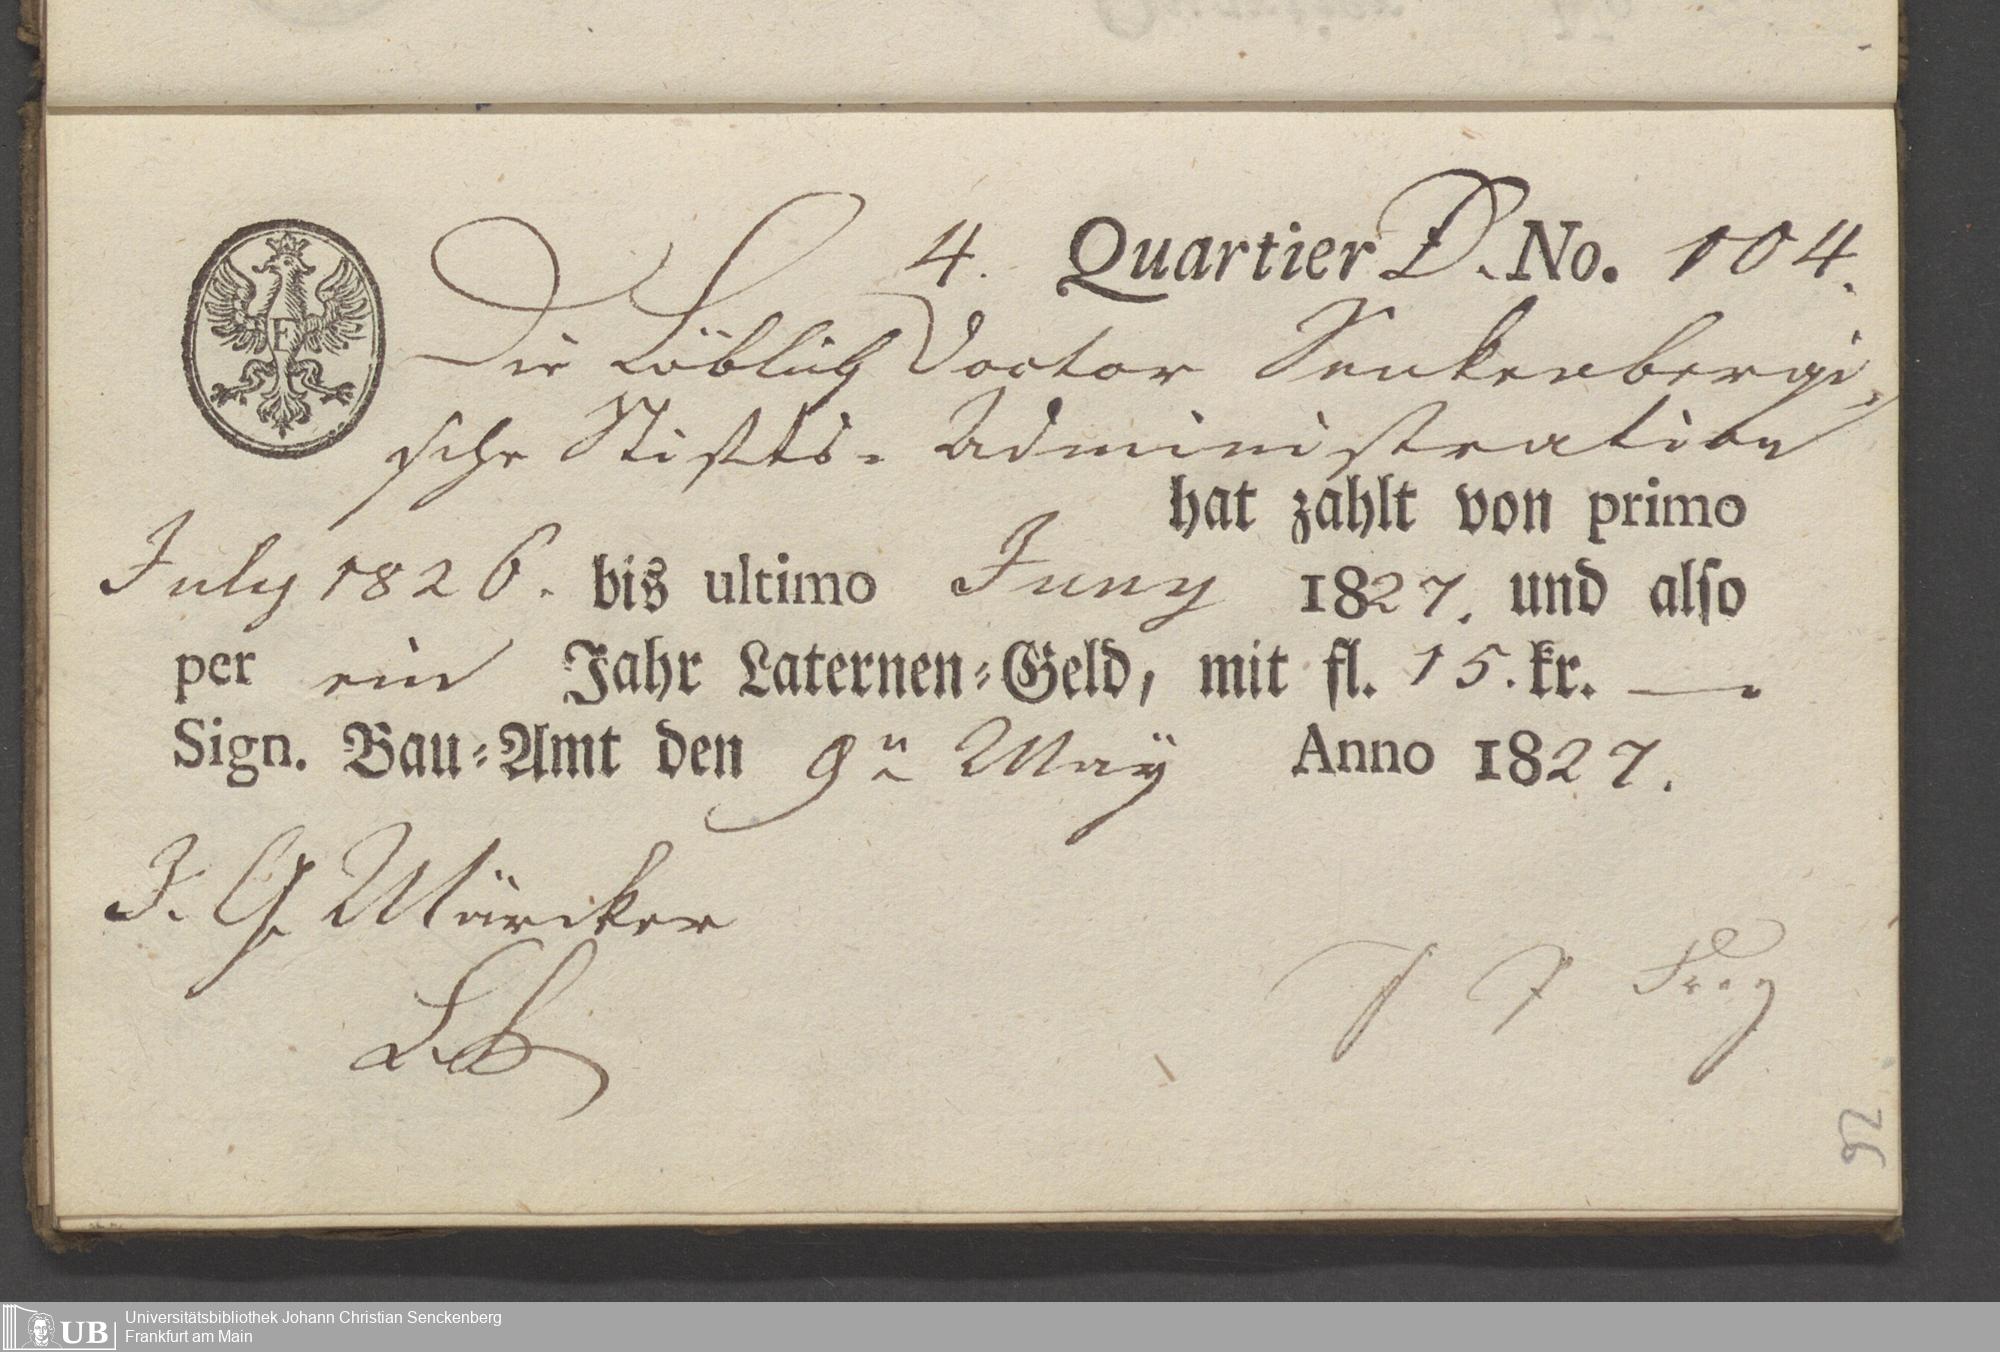 4. Quartier D. No. 104.
F
Die Löblich Doctor Senkenbergi-
sche Stifts-Administration
hat zahlt von primo
July 1826. bis ultimo Juny 1827. und also
per ein Jahr Laternen-Geld, mit fl. 15. kr. —.
Sign. Bau-Amt den 9n May Anno 1827.
J. G. Märcker
Frey
92
UB
Universitätsbibliothek Johann Christian Senckenberg
Frankfurt am Main